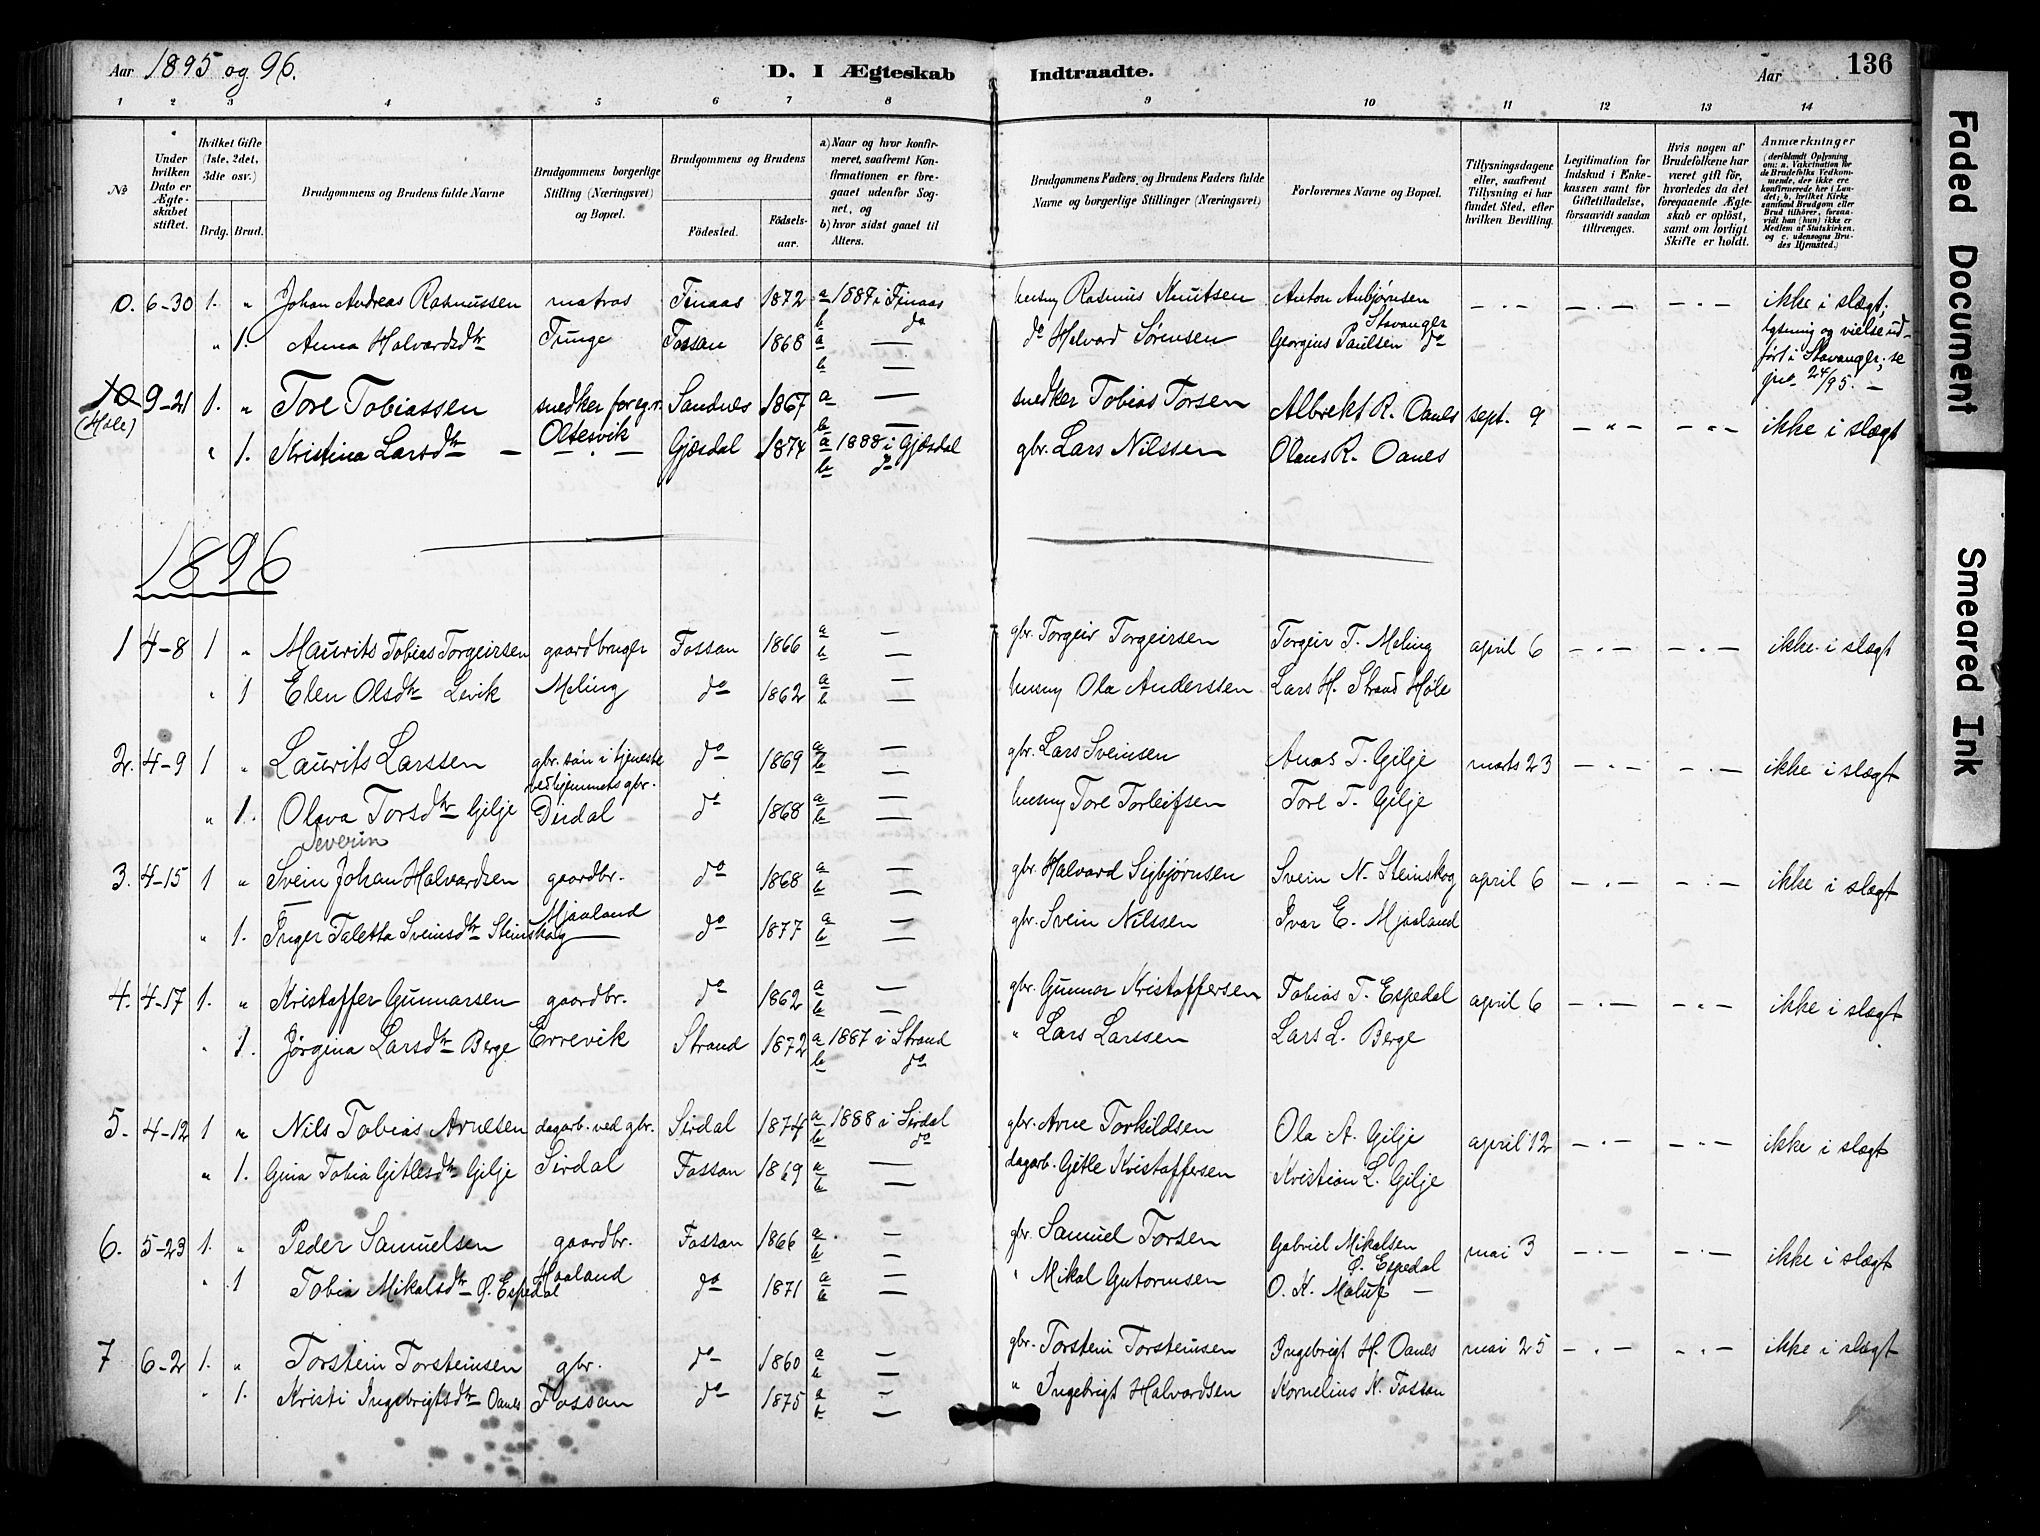 Aar 1895 og 96.
D. I Ægteskab Indtraadte.
Aar 136
1 2 3 4 5 6 7 8 9 10 11 12 13 14
No
Under hvilken Dato er Ægteskabet stiftet.
Hvilket Gifte (1ste, 2det, 3die osv.)
Brdg. Brud.
Brudgommens og Brudens fulde Navne
Brudgommens borgerlige Stilling (Næringsvei) og Bopæl.
Brudgommens og Brudens
Fødested. Fødselsaar.
a) Naar og hvor konfirmeret, saafremt Konfirmationen er foregaaet udenfor Sognet, og
b) hvor sidst gaaet til Alters.
Brudgommens Faders og Brudens Faders fulde Navne og borgerlige Stillinger (Næringsvei)
Forlovernes Navne og Bopæl.
Tillysningsdagene eller, saafremt Tillysning ei har fundet Sted, efter hvilken Bevilling.
Legitimation for Indskud i Enkekassen samt for Giftetilladelse, forsaavidt saadan tiltrænges.
Hvis nogen af Brudefolkene har været gift før, hvorledes da det foregaaende Ægteskab er opløst, samt om lovligt Skifte er holdt.
Anmærkninger
(deriblandt Oplysning om: a. Vakcination for de Brudefolks Vedkommende, der ikke ere konfirmerede her i Landet; b. hvilket Kirkesamfund Brudgom eller Brud tilhører, forsaavidt han (hun) ikke er Medlem af Statskirken, og c. udensogns Brudes Hjemsted.)
0. 6-30 1. " Johan Andreas Rasmussen matros Tinaas 1872 a 1887 i Tinaas husmg Rasmus Knutsen Anton Anbjørnsen — . — — . — — . — ikke i slægt;
b do Stavanger
" 1. Anna Halvardsdtr Tunge Fossan 1868 a — do Halvard Sørensen Georgius Paulsen do lysning og vielse udført i Stavanger; se jna 24/95. —
b —
10 (Høle) 9-21 1. " Tore Tobiassen snedker foreg.v. Sandnes 1867 a — snedker Tobias Torsen Albrekt R. Oanes sept. 9 — " — — " — ikke i slægt
b —
" 1. Kristina Larsdtr — Oltesvik Gjesdal 1874 a 1888 i Gjesdal gbr. Lars Nilssen Olaus R. Oanes
b do
1896
1 4-8 1 " Maurits Tobias Torgeirsen gaardbruger Fossan 1866 a — gbr. Torgeir Torgeirsen Torgeir T. Meling april 6 — . — — . — ikke i slægt
b —
" 1 Elen Olsdtr Levik Meling do 1862 a — husmg Ola Anderssen Lars H. Strand Høle
b —
2. 4-9 1 " Laurits Larssen gbr. søn i tjeneste ved hjemmets gbr. do 1869 a — gbr. Lars Sveinsen Anas T. Gilje marts 23 — . — — . — ikke i slægt
b —
" 1. Olava Torsdtr Gilje Dirdal do 1868 a — husmg Tore Torleifsen Tore T. Gilje
b —
Severin
3. 4-15 1 " Svein Johan Halvardsen gaardbr. do 1868 a — gbr. Halvard Sigbjørnsen Svein N. Steinskog april 6 — . — — . — ikke i slægt
b —
" 1. Inger Taletta Sveinsdtr Steinskog Mjaaland do 1877 a — gbr. Svein Nilssen Ivar E. Mjaaland
b —
4. 4-17 1. " Kristoffer Gunnarsen gaardbr. do 1862 a — gbr. Gunnar Kristoffersen Tobias T. Espedal april 6 — . — — . — ikke i slægt
b —
" 1. Jørgina Larsdtr Berge Errevik Strand 1872 a 1887 i Strand " Lars Larssen Lars L. Berge
b do
5. 4-12 1 " Nils Tobias Arnesen dagarb. ved gbr. Sirdal 1874 a 1888 i Sirdal gbr. Arne Torkildsen Ola A. Gilje april 12 — . — — . — ikke i slægt
b do
" 1. Gina Tobia Gitlesdtr Gilje Sirdal Fossan 1869 a — dagarb. Gitle Kristoffersen Kristian L. Gilje
b —
6. 5-23 1. " Peder Samuelsen gaardbr. Fossan 1866 a — gbr. Samuel Torsen Gabriel Mikalsen Ø. Espedal mai 3 — . — — . — ikke i slægt
b —
" 1 Tobia Mikalsdtr Ø. Espedal Haaland do 1871 a — " Mikal Gutormsen O. K. Maluf —
b —
7 6-2 1. " Torstein Torsteinsen gbr. do 1860 a — gbr. Torstein Torsteinsen Ingebrigt H. Oanes mai 25 — . — — . — ikke i slægt
b —
" 1. Kristi Ingebrigtsdtr Oanes Fossan do 1875 a — " Ingebrigt Halvardsen Kornelius N. Fossan
b —
Faded Document
Smeared Ink